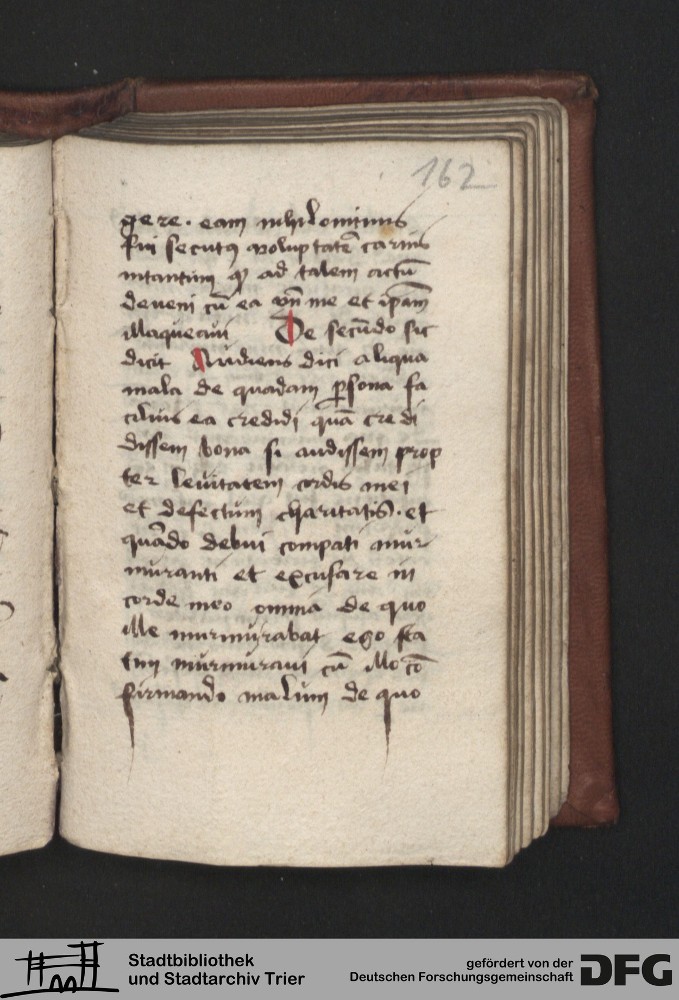 162
gere. eam nihilominus
fui secutꝰ voluptatē carnis
intantum ꝙ ad talem actū
deveni cū ea vn̄ me et ip̄am
illaqueavi De secūdo sic
dicit Audiens dici aliqua
mala de quadam ꝑsona fa
cilius ea credidi quā credi
dissem bona si audissem prop
ter levitatem cordis mei
et defectum charitatis. et
quādo debui compati mur
muranti et excusare in
corde meo omnia de quo
ille murmurabat ego sta
tim murmuravi cū illo cō
firmando malum de quo
Stadtbibliothek
und Stadtarchiv Trier
gefördert von der
Deutschen Forschungsgemeinschaft
DFG